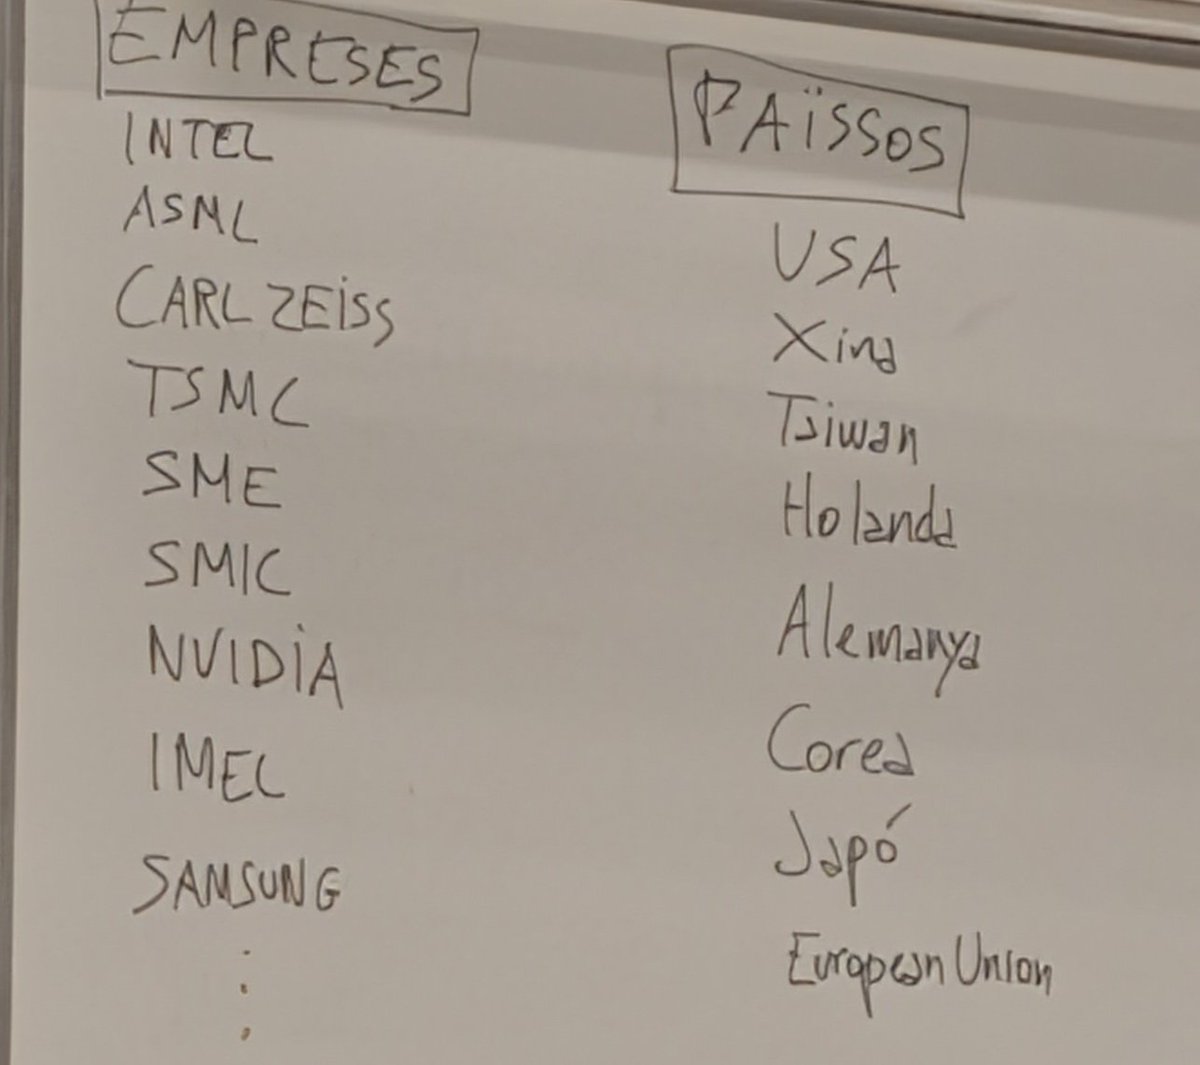 EMPRESES
INTEL
ASML
CARL ZEISS
TSMC
SME
SMIC
NVIDIA
IMEC
SAMSUNG
PAÏSSOS
USA
Xina
Taiwan
Holanda
Alemanya
Corea
Japó
European Union